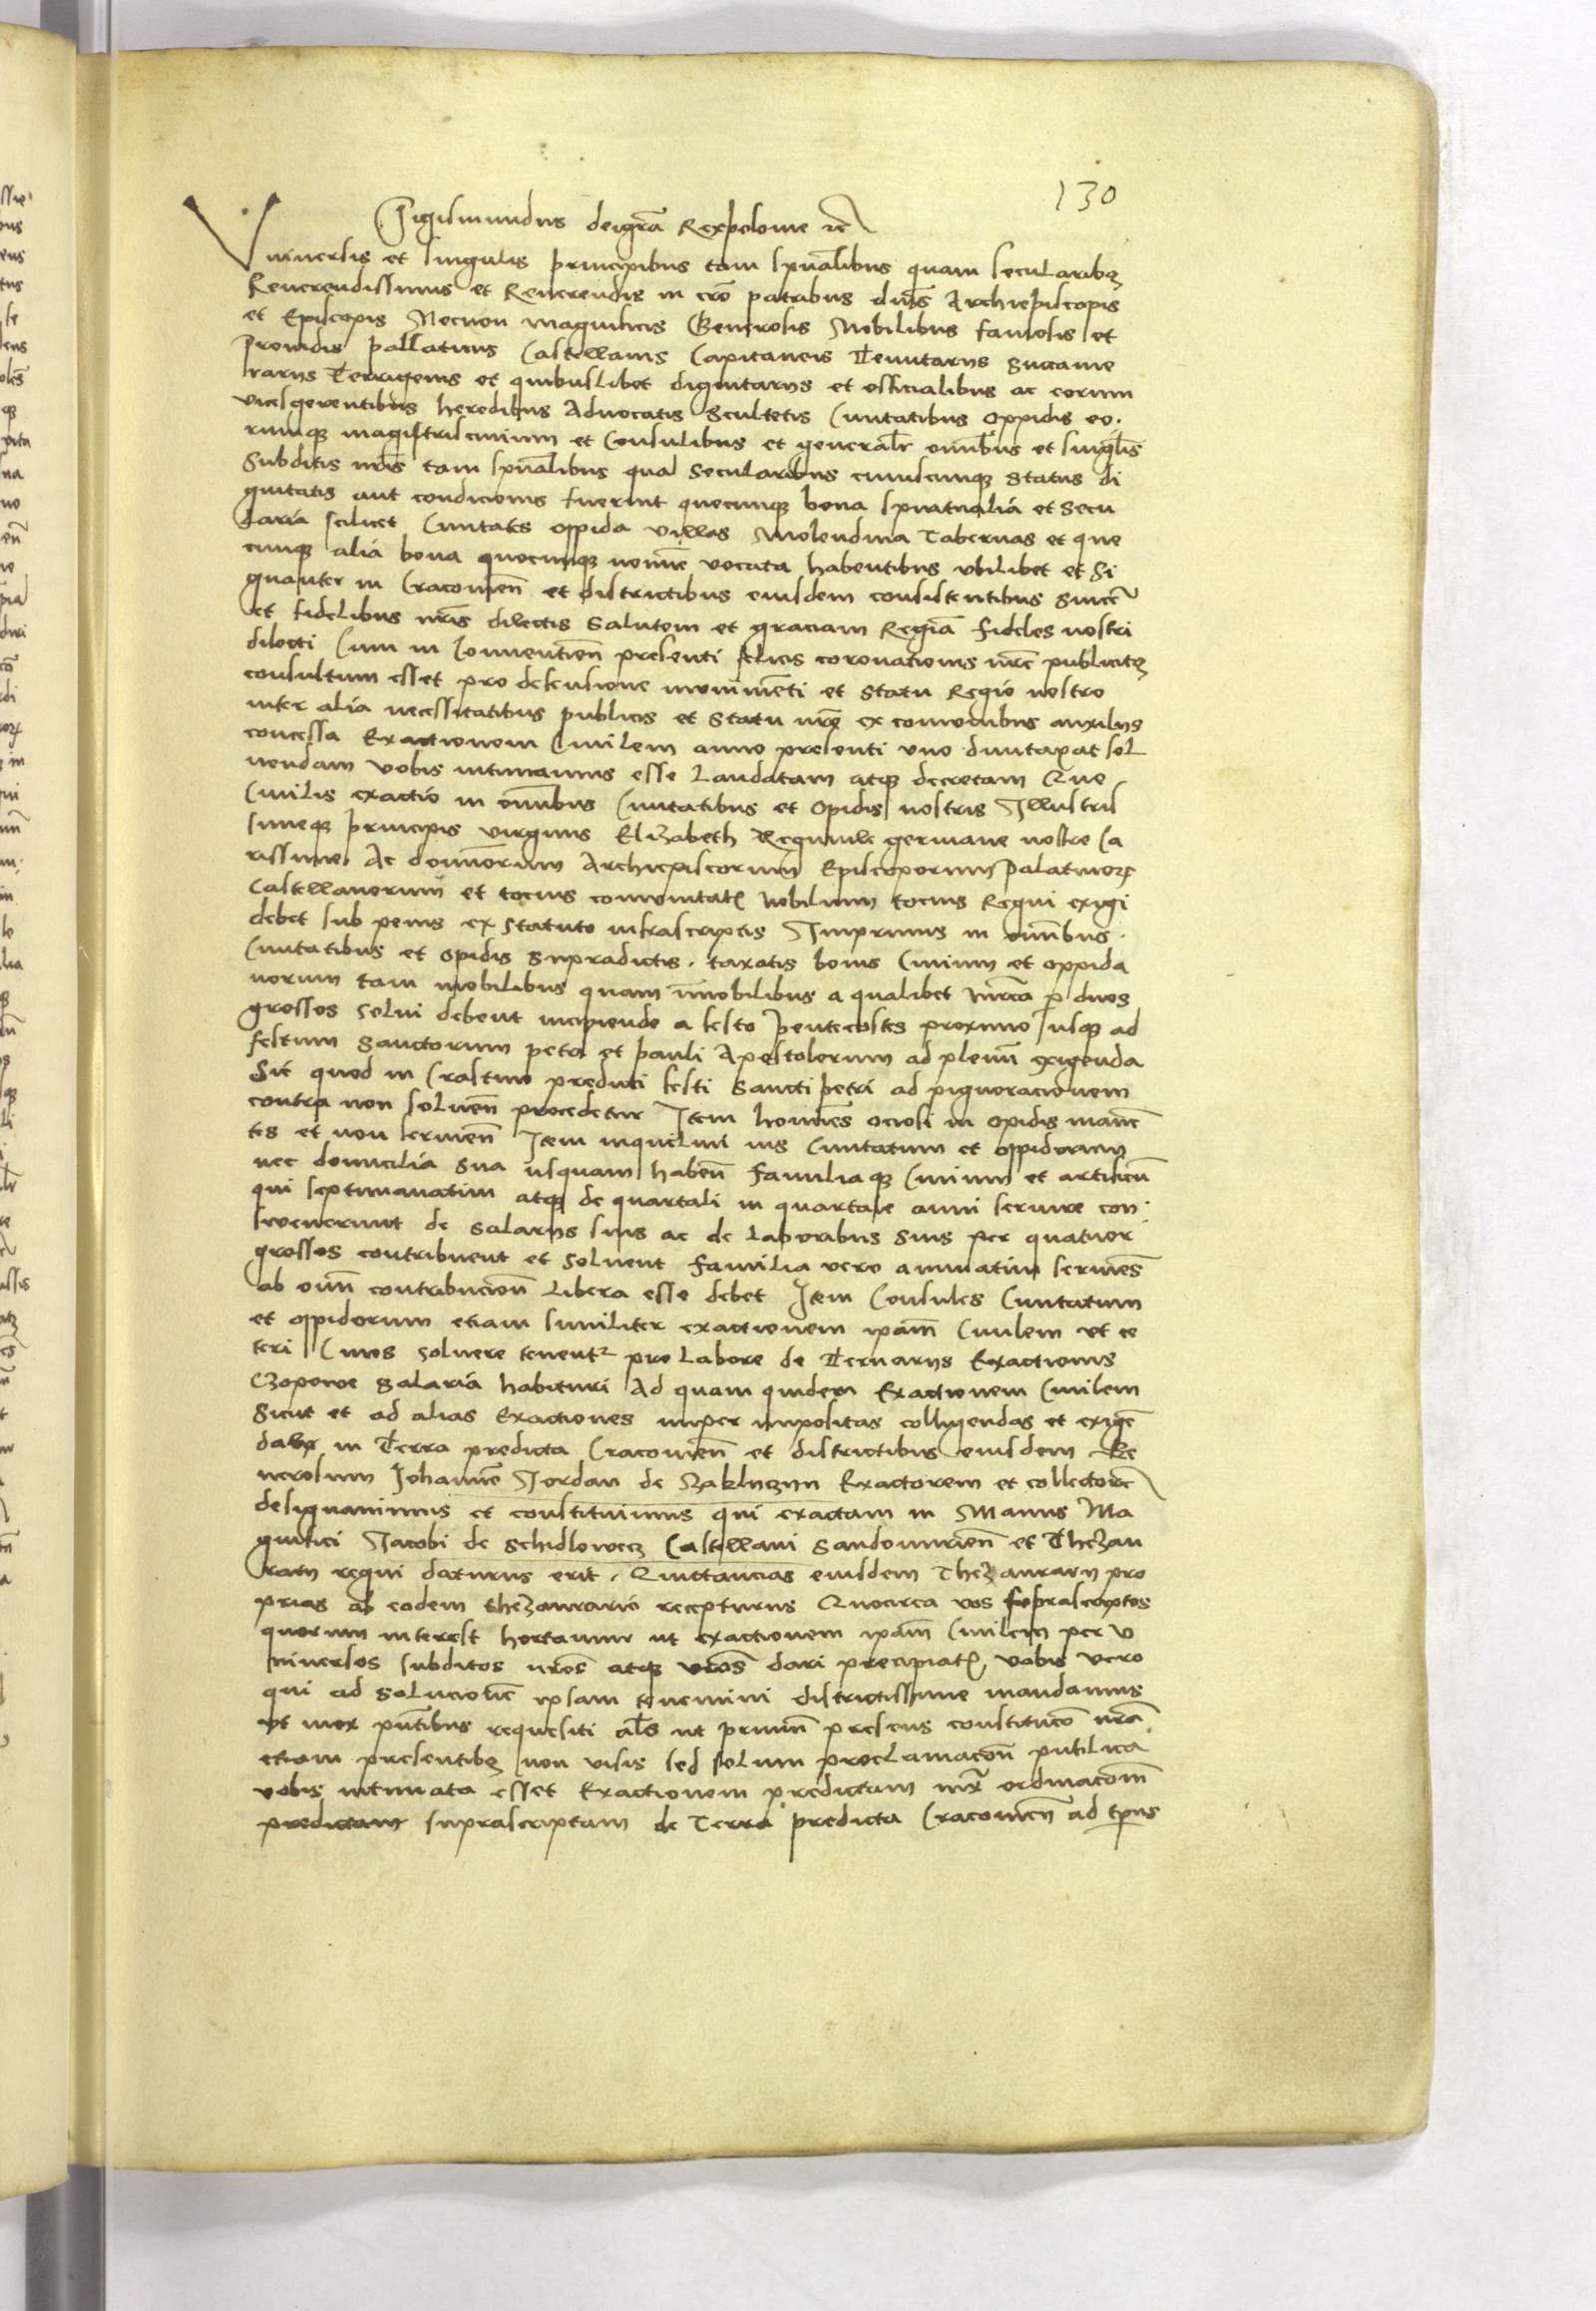 130
Sigismundus dei grã Rex polonie ꝛc
Vniuersis et singulis principibus tam spũalibus quam secularibꝫ
Reuerendissimis et Reuerendis in cr̃o patribus dnĩs Archiepiscopis
et Episcopis Necnon magnificis Generosis Nobilibus famosis et
Prouidis pallatinis Castellanis Capitaneis Tenutarijs Succame
rarijs Terrigenis et quibuslibet dignitarijs et officialibus ac eorum
vicesgerentibus heredibus Aduocatis Scultetis Ciuitatibus Oppidis eo
rumqꝫ magistriscinium et Consulibus et generalr̃ omĩbus et singl̃is
Subditis nr̃is tam spũalibus qua Secularibus cuiuscunqꝫ Status di
gnitatis aut condicionis fuerint quecunqꝫ bona spiritualia et Secu
laria scilicet Ciuitates oppida villas Molendina Tabernas et que
cunqꝫ alia bona quocunqꝫ nomĩe vocata habentibus vbilibet et Si
gnanter in Cracouieñ et districtibus eiusdem consistentibus Sincer̃
et fidelibus nr̃is dilectis Salutem et graciam Regiã fideles nostri
dilecti Cum in Conuentioñ presenti felicis coronationis nr̃e publicitꝫ
consultum esset pro defensione monimẽti et Statu Regio nostro
inter alia necessitatibus publicis et Statu nr̃o ex comunibus auxilijs
concessa Exactionem Ciuilem anno presenti vno duntaxat sol
uendam vobis intimamus esse Laudatam atqꝫ decretam Que
Ciuilis exactio in omĩbus Ciuitatibus et Opidis nostris Illustris
simeqꝫ principis virginis Elizabeth Reginule germane nostre Ca
rissime Ac dominorum Archiepiscorum Episcoporum Palatinoꝝ
Castellanorum et tocius comunitatis Nobilium tocius Regni exigi
debet sub penis ex Statuto infrascriptis Inprimis in omĩbus
Ciuitatibus et Opidis supradictis taxatis bonis Ciuium et oppida
norum tam mobilibus quam im̃obilibus a qualibet Mr̃ca p duos
grossos Solui debent incipiendo a festo penthecostes proximo usqꝫ ad
festum Sanctorum petri et pauli Apostolorum ad plenũ exigenda
Sic quod in Crastino predicti festi Sancti petri ad pignoracionem
contra non soluen̄ procedetur Item homĩes ociosi in opidis manẽ
tes et non seruien̄ Item inquilini ius Ciuitatum et oppidorum
nec domicilia sua usquam haben̄ familiaqꝫ Ciuium et artificũ
qui septimanatim atqꝫ de quartali in quartale anni seruire con
sweuerunt de salarijs suis ac de Laboribus suis per quatuor
grossos contribuent et soluent familia vero annuatim seruiẽs
ab omñ contribucioñ Libera esse debet Item Consules Ciuitatum
et oppidorum etiam similiter exactionem ipam̃ Ciuilem vt ce
teri Ciues soluere tenentᷣ pro Labore de Ternarijs Exactionis
Czopowe Salaria habituri Ad quam quidem Exactionem Ciuilem
Sicut et ad alias Exactiones nuper impositas colligendas et exigẽ
das in Terra predicta Cracouien̄ et districtibus eiusdem Ge
nerosum Johannẽ Jordan de Zakluczyn Exactorem et collectorẽ
designauimus et constituimus qui exactam in Manus Ma
gnifici Jacobi de Schidloweecz Castellani Sandomirien̄ et Thezau
rarij regni daturus erit. Quittancias eiusdem Thezaurarij pro
prias ab eodem thezaurario recepturus Quocirca vos suprascriptos
quorum interest hortamur ut exactionem ipam̃ Ciuilem per v
niuersos subditos nr̃os atqꝫ vr̃os dari precipiatis, vobis vero
qui ad solucionẽ ipsam tenemini districtissime mandamus
vt mox pñtibus requisiti als̃ ut primũ presens constitucõ nr̃a
etiam presentibꝫ non visis sed solum proclamacõñ publica
vobis intimata esset Exactionem predictam iux̃ ordinacõm̃
predictam suprascriptam de Terra predicta Cracouien̄ ad tp̃us